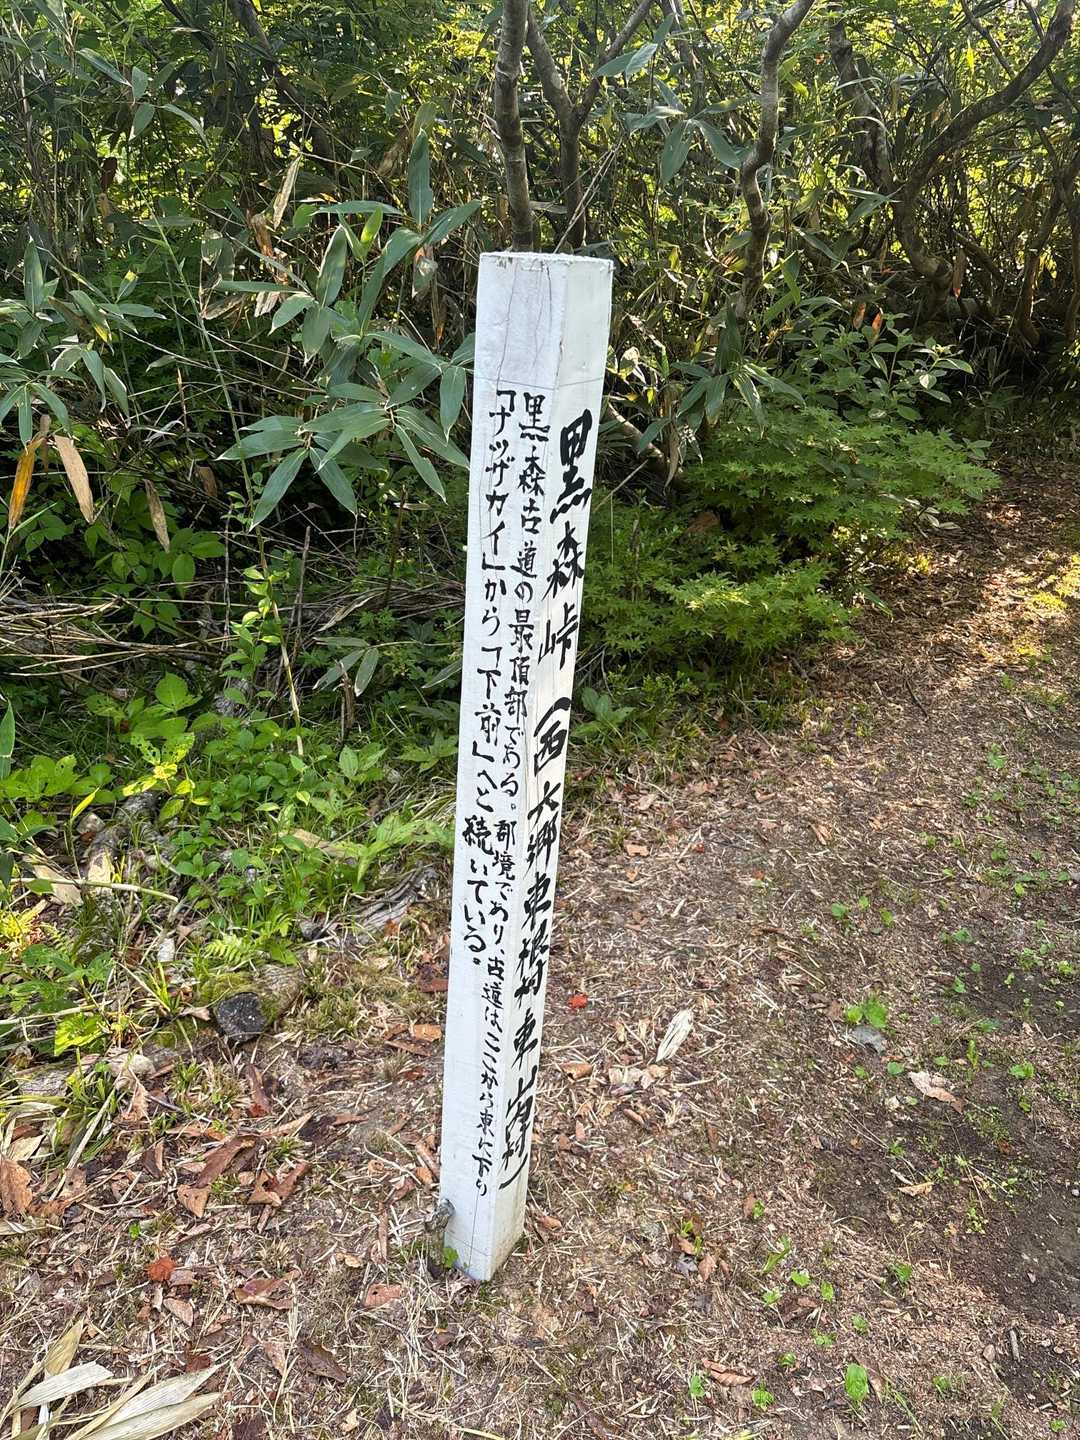 黒森峠(西六郷東根村東山村)
黒森古道の最頂部である。郡境であり、古道はここから東に下り
「ナツザカイ」から「下前」へと続いている。